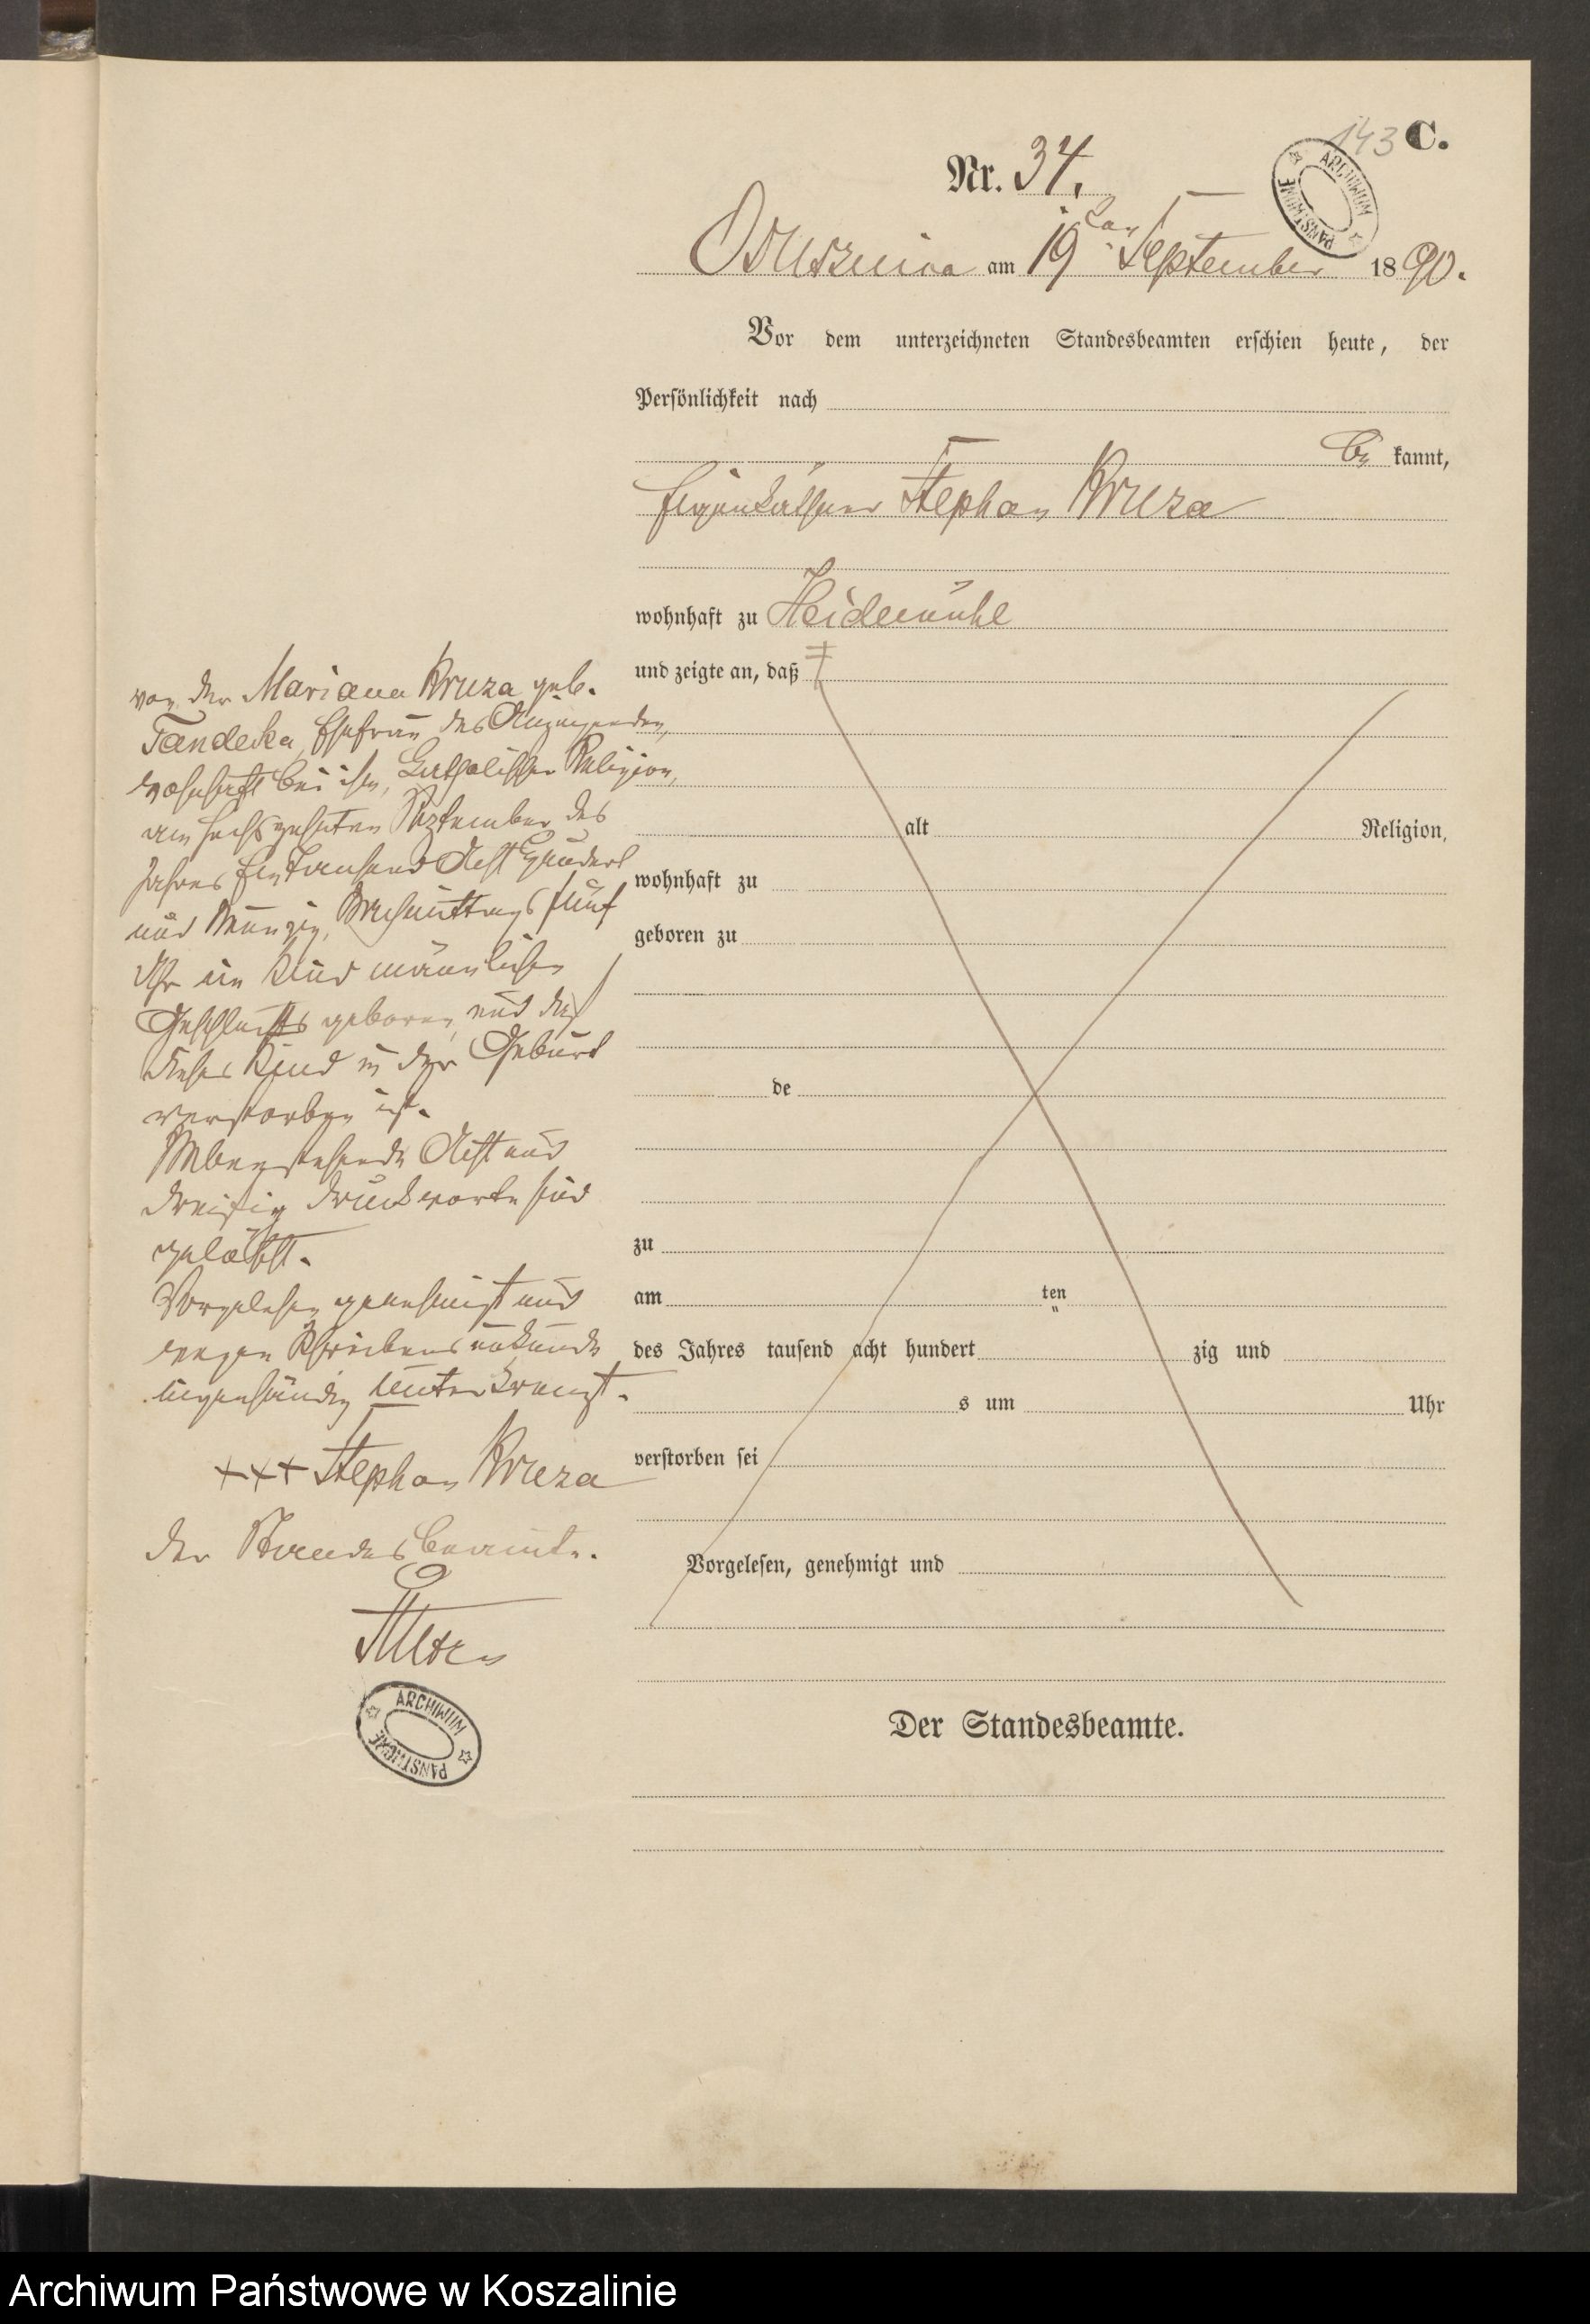 143 C.
Nr. 34.
ARCHIWUM PAŃSTWOWE
Ossusznica am 19ten September 1890.
Vor dem unterzeichneten Standesbeamten erschien heute, der
Persönlichkeit nach
be kannt,
Eigenkäthner Stephan Bruza
wohnhaft zu Heidemühl
und zeigte an, daß
von der Mariana Bruza geb.
Tandecka, Ehefrau des Anzeigenden,
wohnhaft bei ihm, katholischer Religion,
am sechszehnten September des
Jahres Ein Tausend Acht Hundert
und Neunzig, Nachmittags fünf
Uhr ein Kind männlichen
Geschlechts geboren, und daß
dieses Kind in der Geburt
verstorben ist.
Nebenstehende Acht und
dreißig Druckworte sind
gelöscht.
Vorgelesen genehmigt und
wegen Schreibensunkunde
eigenhändig unterkreuzt.
+++ Stephan Bruza
der Standesbeamte.
ARCHIWUM PAŃSTWOWE
alt Religion,
wohnhaft zu
geboren zu
de
zu
am ten
"
des Jahres tausend acht hundert zig und
s um Uhr
verstorben sei
Vorgelesen, genehmigt und
Der Standesbeamte.
Archiwum Państwowe w Koszalinie